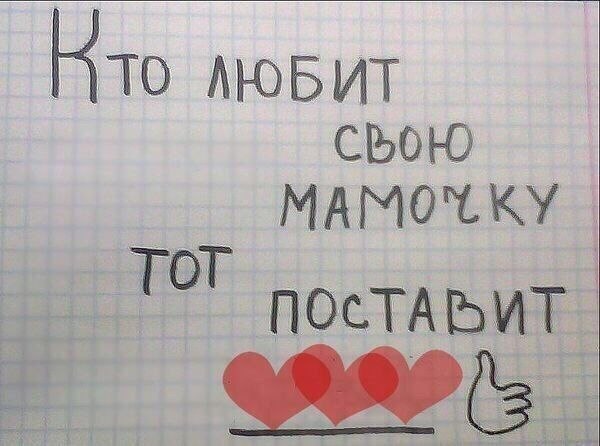 Кто любит
свою
мамочку
тот
поставит